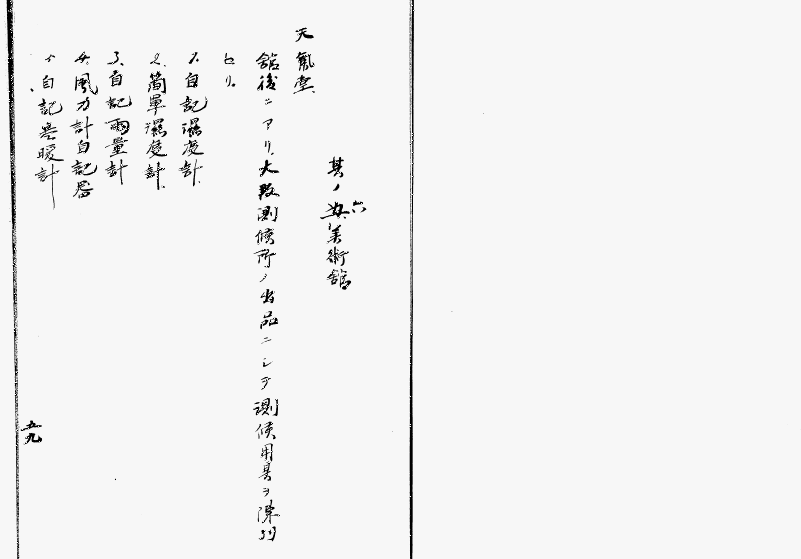 其ノ六 美術館
天氣臺
館後ニアリ、大阪測候所ノ出品ニシテ測候用具ヲ陳列
セリ。
1. 自記濕度計.
2. 簡單濕度計.
3. 自記雨量計
4. 風力計自記器
5. 自記寒暖計
五九